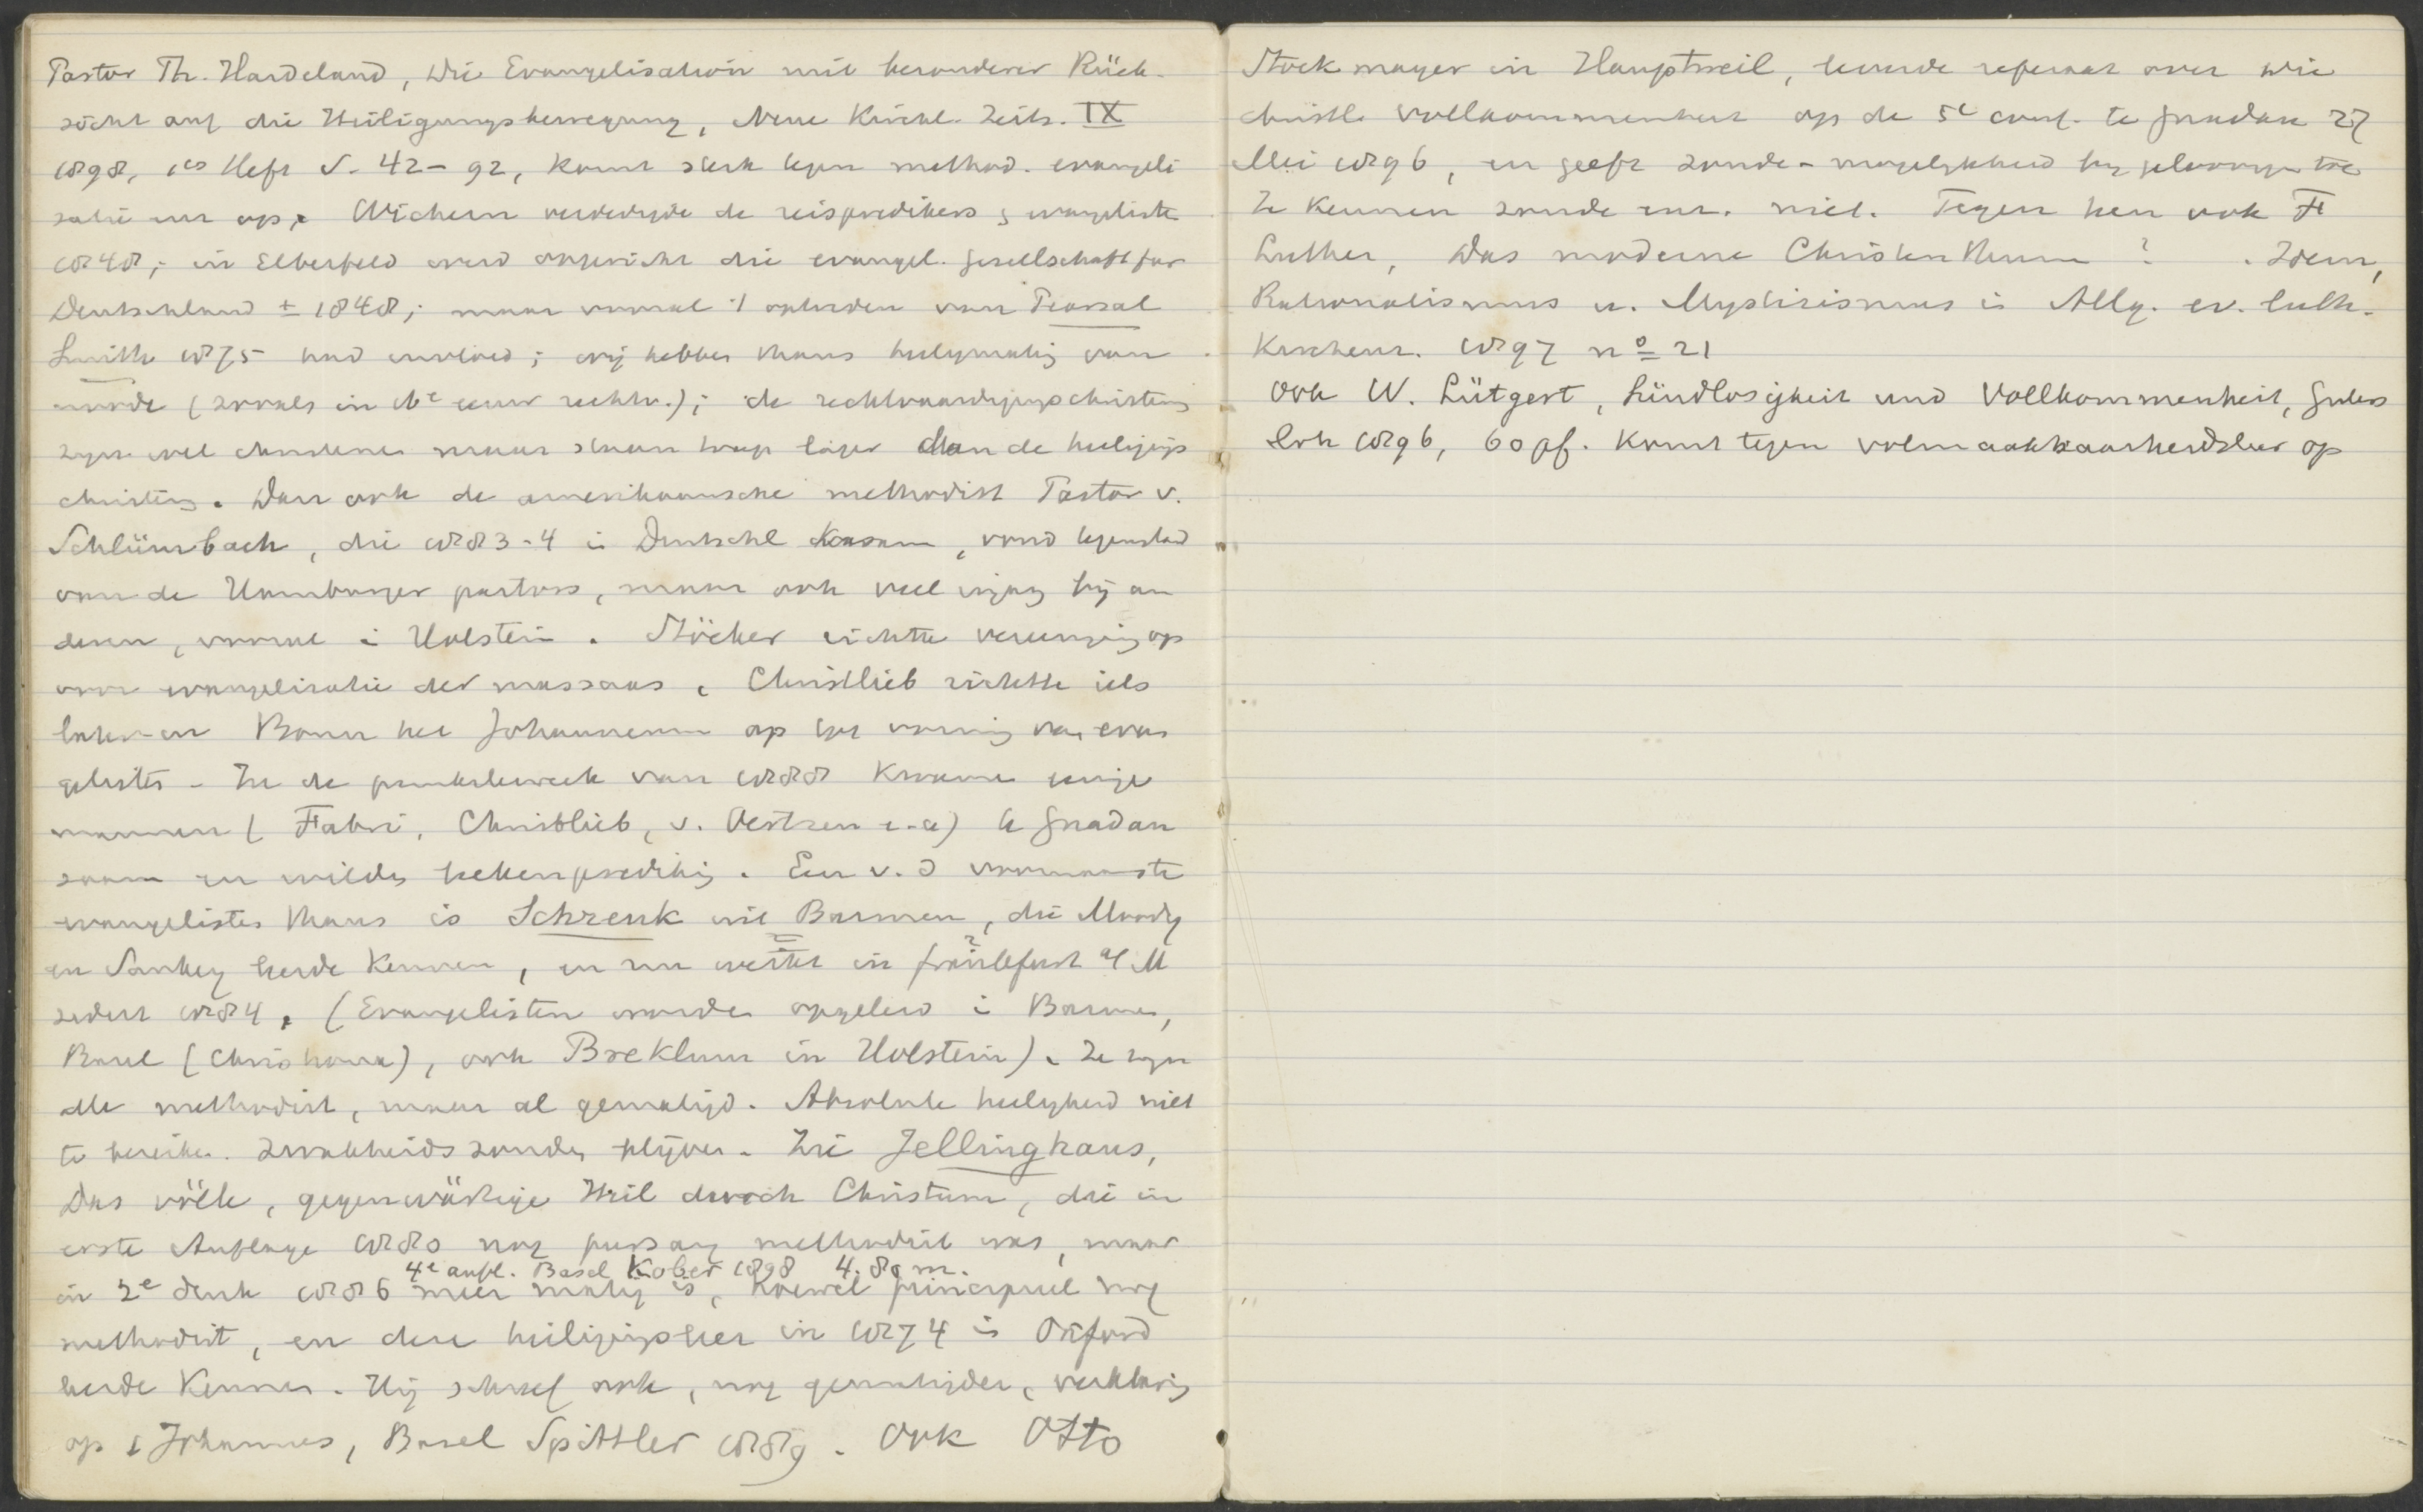 Pastor Th. Hardeland, Die Evangelisation mit besonderer Rück-
sicht auf die Heiligungsbewegung, Neue Kirchl. Zeits. IX
1898, 1es Heft S. 42-92, komt sterk tegen method. evangeli
satie enz op. Wichern verdedigde de reispredikers & evangeliste
1848; in Elberfeld werd opgericht die evangel. Gesellschaft für
Deutschland ± 1848; maar vooral 't optreden van Pearsal
Smith 1875 had invloed; wij hebben thans heiligmakig van
noode (zooals in 16e eeuw rechtv.); de rechtvaardigigschristens
zijn wel christenen maar staan trap lager dan de heiligigs
christens. Dan ook de amerikaansche methodist Pastor v.
Schlümbach, die 1883-4 in Deutschl kwam, vond tegenstand
van de Hamburger pastors, maar ook veel ingang bij an
deren, vooral i Holstein. Stöcker richtte vereenigig op
voor evangelisatie der massaas. Christlieb richtte iets
later in Bonn het Johanneum op ter vormig van evan
gelisten - In de pinksterweek van 1888 kwamen eenige
mannen (Fabri, Christlieb, v. Oertzen e.a) te Gnadau
saam en wilden leekenpredikig. Een v. d voornaamste
evangelisten thans is Schrenk uit Barmen, die Moody
en Sankey leerde kennen, en nu werkt in Frankfurt a/M
sedert 1884. (Evangelisten worden opgeleid i Barmen,
Basel (Chrishona), ook Breklum in Holstein). Ze zijn
alle methodist, maar al gematigd. Absolute heiligheid niet
te bereiken. Zwakheidszonden blijven. Zie Jellinghaus,
Das völle, gegenwärtige Heil durch Christum, die in
erste Auflage 1880 nog methodist was, maar
4e aufl. Basel Kober 1898 4.80 m.
in 2e druk 1886 meer matig is, hoewel principieel nog
methodist, en deze heiligigsleer in 1874 i Oxford
leerde kennen. Hij schreef ook, nog gematigder, verklarig
op 1 Johannes, Basel Spittler 1889. Ook Otto
Stockmayer in Hauptweil, leverde referaat over die
christl. Vollkommenheit op de 5e conf. te Gnadau 27
Mei 1896, en geeft zonde-mogelijkheid bij geloovigen toe
Ze kennen zonde enz. niet. Tegen hen ook F
Luther, Das moderne Christenthum ? . Idem,
Rationalismus u. Mystizismus i Allg. ev. luth.
Kirchenz. 1897 no 21
Ook W. Lütgert, Sündlosigkeit und Vollkommenheit, Güters
loh 1896, 60 pf. Komt tegen volmaakbaarheidsleer op